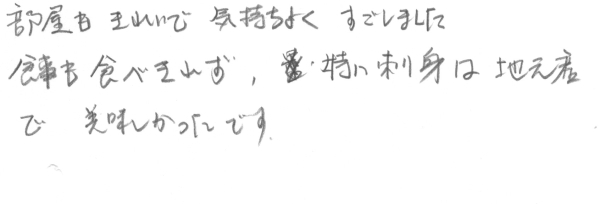 部屋も きれいで 気持ちよく すごしました
食事も 食べきれず, 特に刺身は 地元産
で 美味しかったです